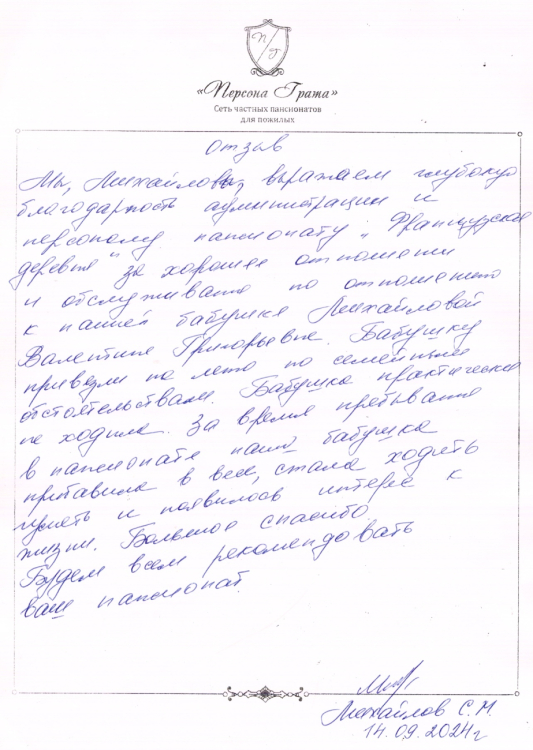 П/Г
«Персона Гража»
Сеть частных пансионатов
для пожилых
отзыв
Мы, Михайловы, выражаем глубокую
благодарность администрации и
персоналу пансионату „Французская
деревня" за хорошее отношение
и обслуживание по отношению
к нашей бабушке Михайловой
Валентине Григорьевне. Бабушку
привезли на лето по семейным
обстоятельствам. Бабушка практически
не ходила. За время пребывания
в пансионате наша бабушка
прибавила в весе, стала ходить
гулять и появилось интерес к
жизни. Большое спасибо
Будем всем рекомендовать
ваш пансионат.
Михайлов С. М.
14.09.2024г